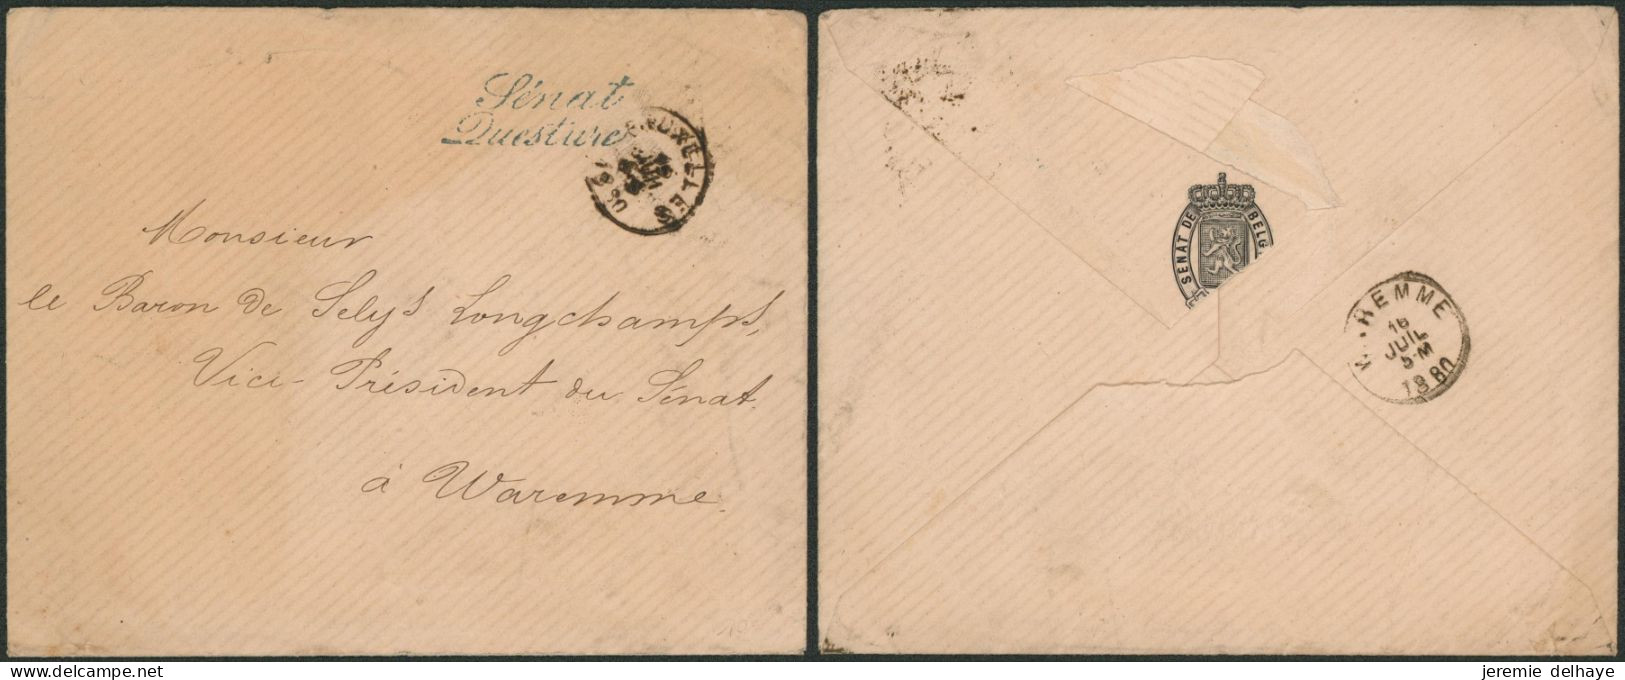 Sénat
Questure
BRUXELLES
Monsieur
le Baron de Selys Longchamps,
Vice-Président du Sénat
à Waremme.
SÉNAT DE BELG
REMME
16
JUIL
5-M
1880
jeremie delhaye